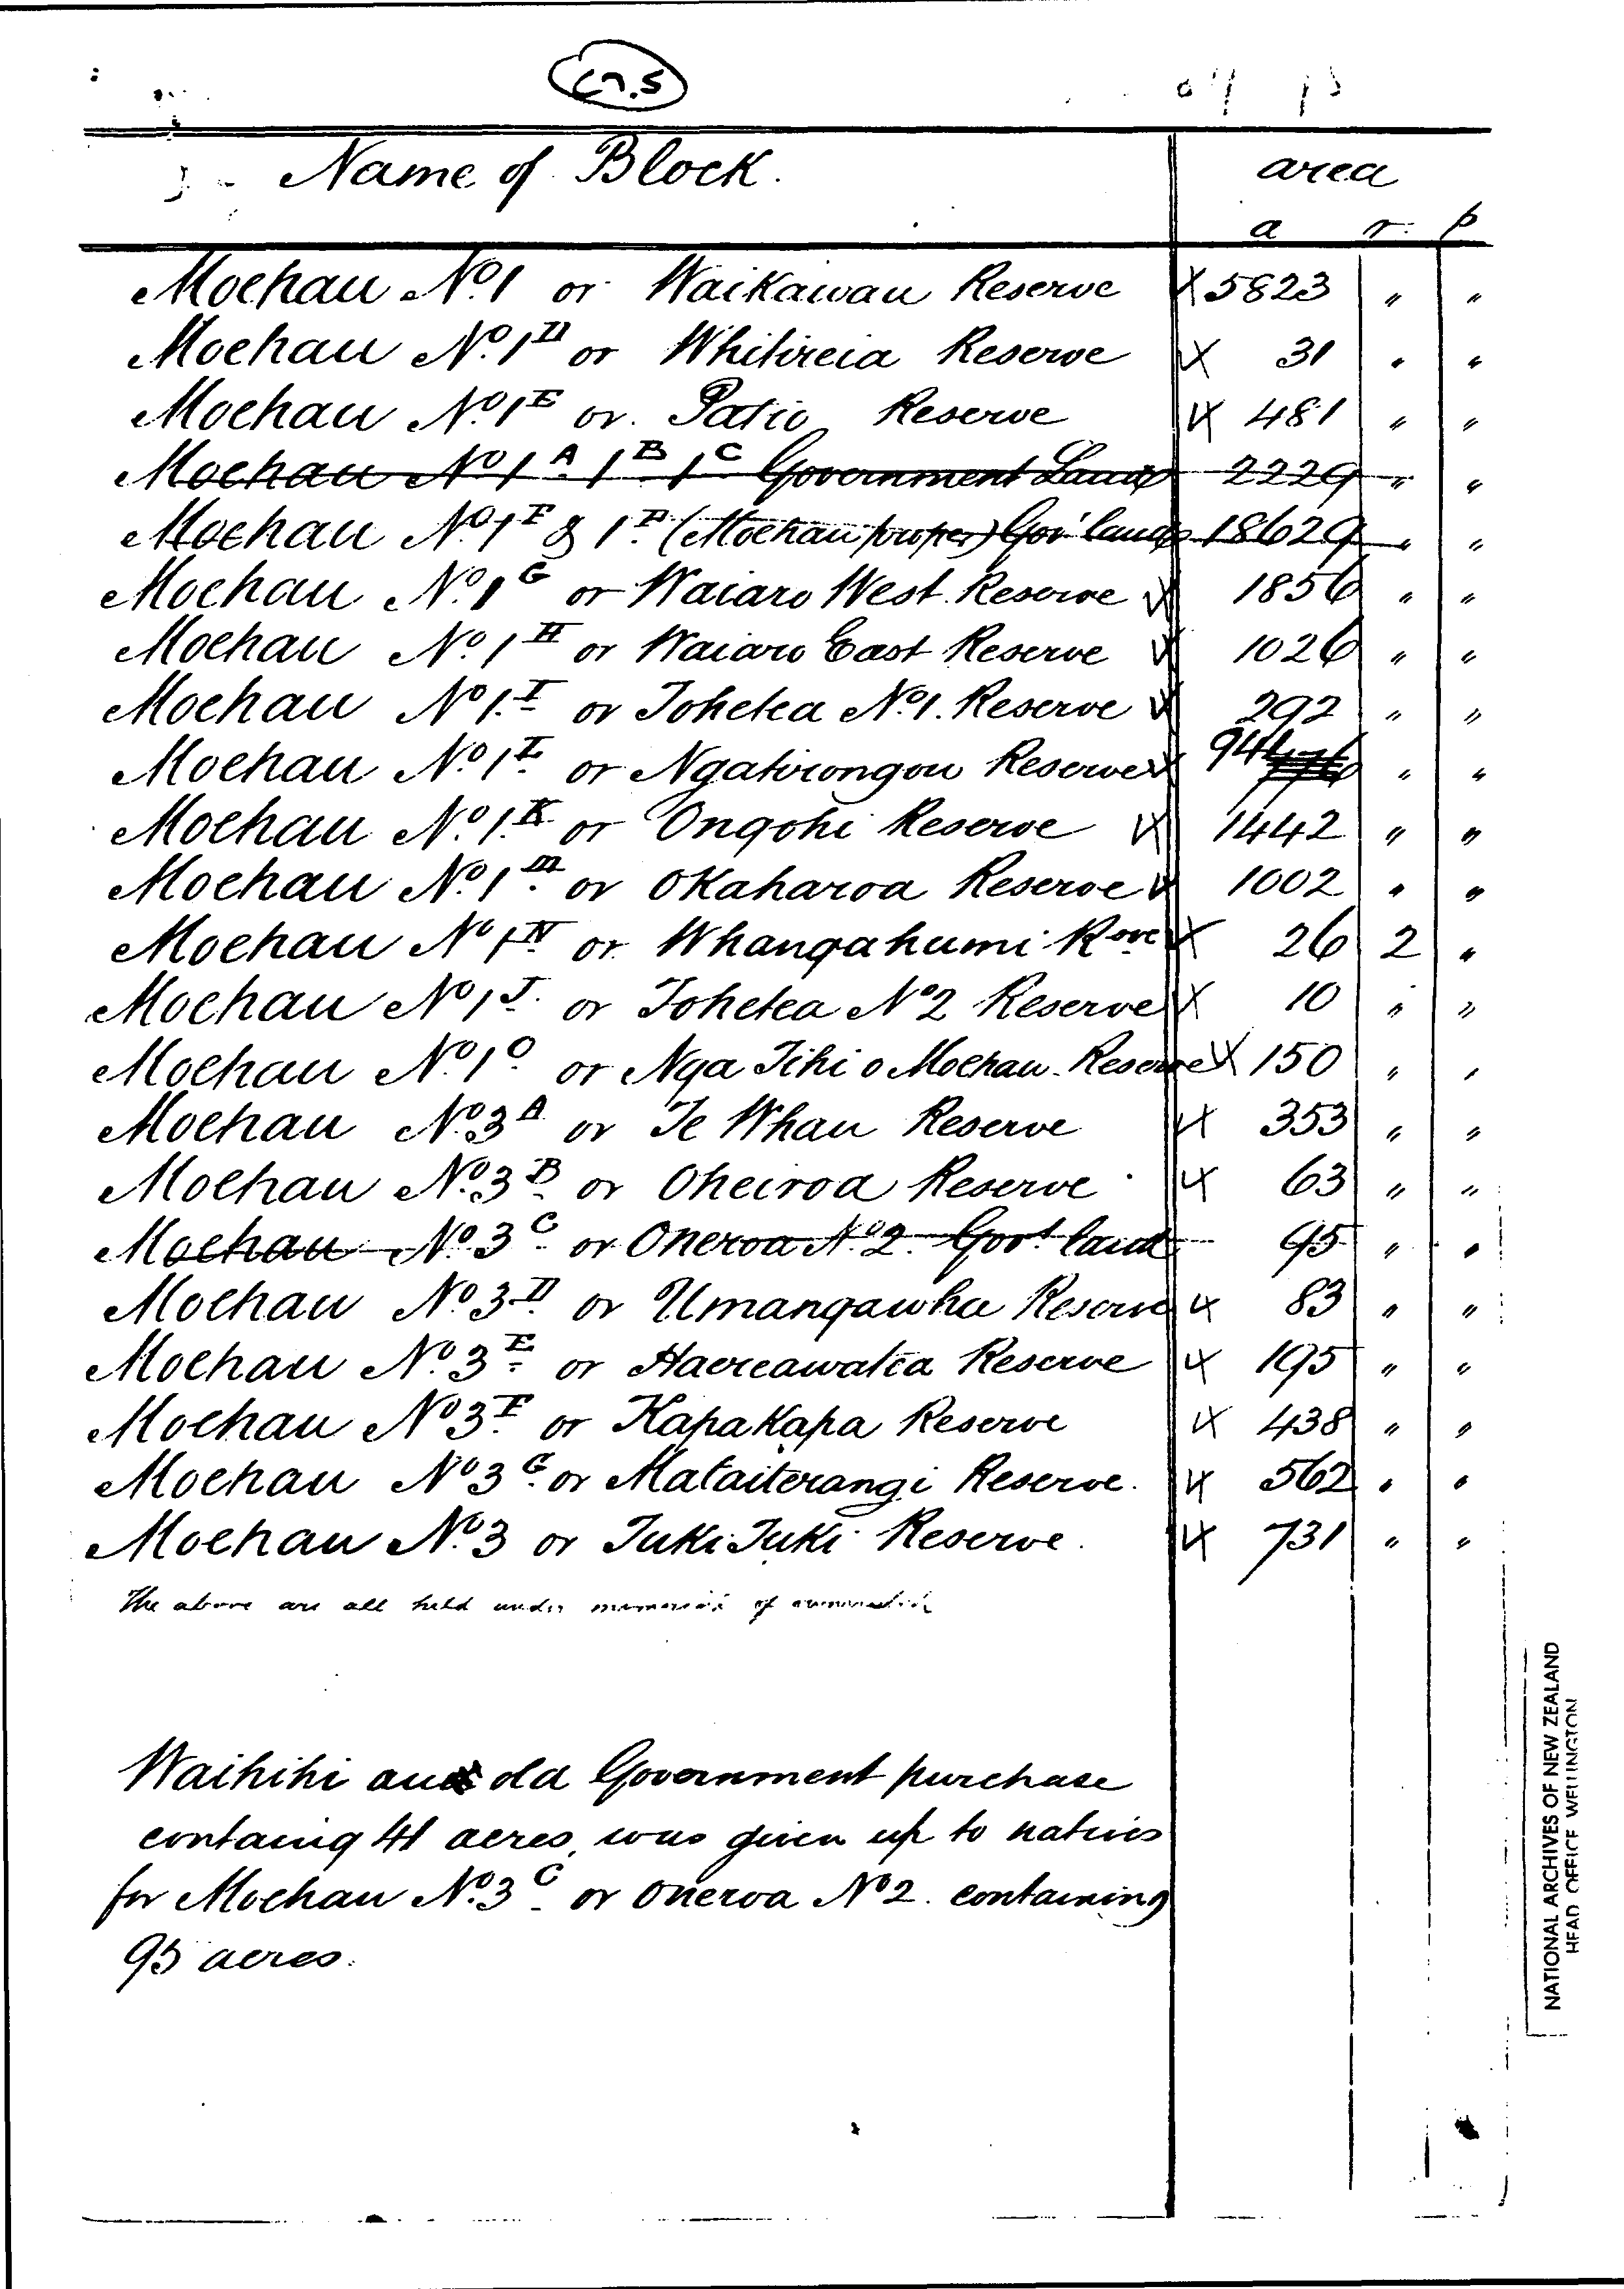 Name of Block.
area
a r. p
Moehau No. 1 or Waikawau Reserve X 5823 " "
Moehau No. 1D or Whitireia Reserve X 31 " "
Moehau No. 1E or Patio Reserve X 481 " "
Moehau No 1A 1B 1C Government Land 2229 " "
Moehau No. 1F & 1P (Moehau proper) Gov' land 18629 " "
Moehau No. 1G or Waiaro West Reserve X 1856 " "
Moehau No. 1H or Waiaro East Reserve X 1026 " "
Moehau No 1.I or Tohetea No. 1. Reserve X 292 " "
Moehau No. 1L or Ngatirongou Reserve X 944 " "
Moehau No. 1.K or Ongohi Reserve X 1442 " "
Moehau No. 1M or Okaharoa Reserve X 1002 " "
Moehau No 1N or Whangahumi Rove X 26 2 "
Moehau No 1J. or Tohetea No 2 Reserve X 10 " "
Moehau No. 1O or Nga Tihi o Moehau Reserve X 150 " "
Moehau No. 3A or Te Whau Reserve X 353 " "
Moehau No. 3B or Oheiroa Reserve X 63 " "
Moehau No. 3C or Oneroa No. 2. Govt land 95 " "
Moehau No. 3D or Umangawha Reserve X 83 " "
Moehau No. 3E or Haereawatea Reserve X 195 " "
Moehau No 3F or Kapakapa Reserve X 438 " "
Moehau No 3G or Mataiterangi Reserve. X 562 " "
Moehau No. 3 or Tuki Tuki Reserve. X 731 " "
The above are all held under memorial of
Waihihi an old Government purchase
containg 41 acres, was given up to natives
for Moehau No. 3C or Oneroa No 2. containing
95 acres.
NATIONAL ARCHIVES OF NEW ZEALAND
HEAD OFFICE WELLINGTON